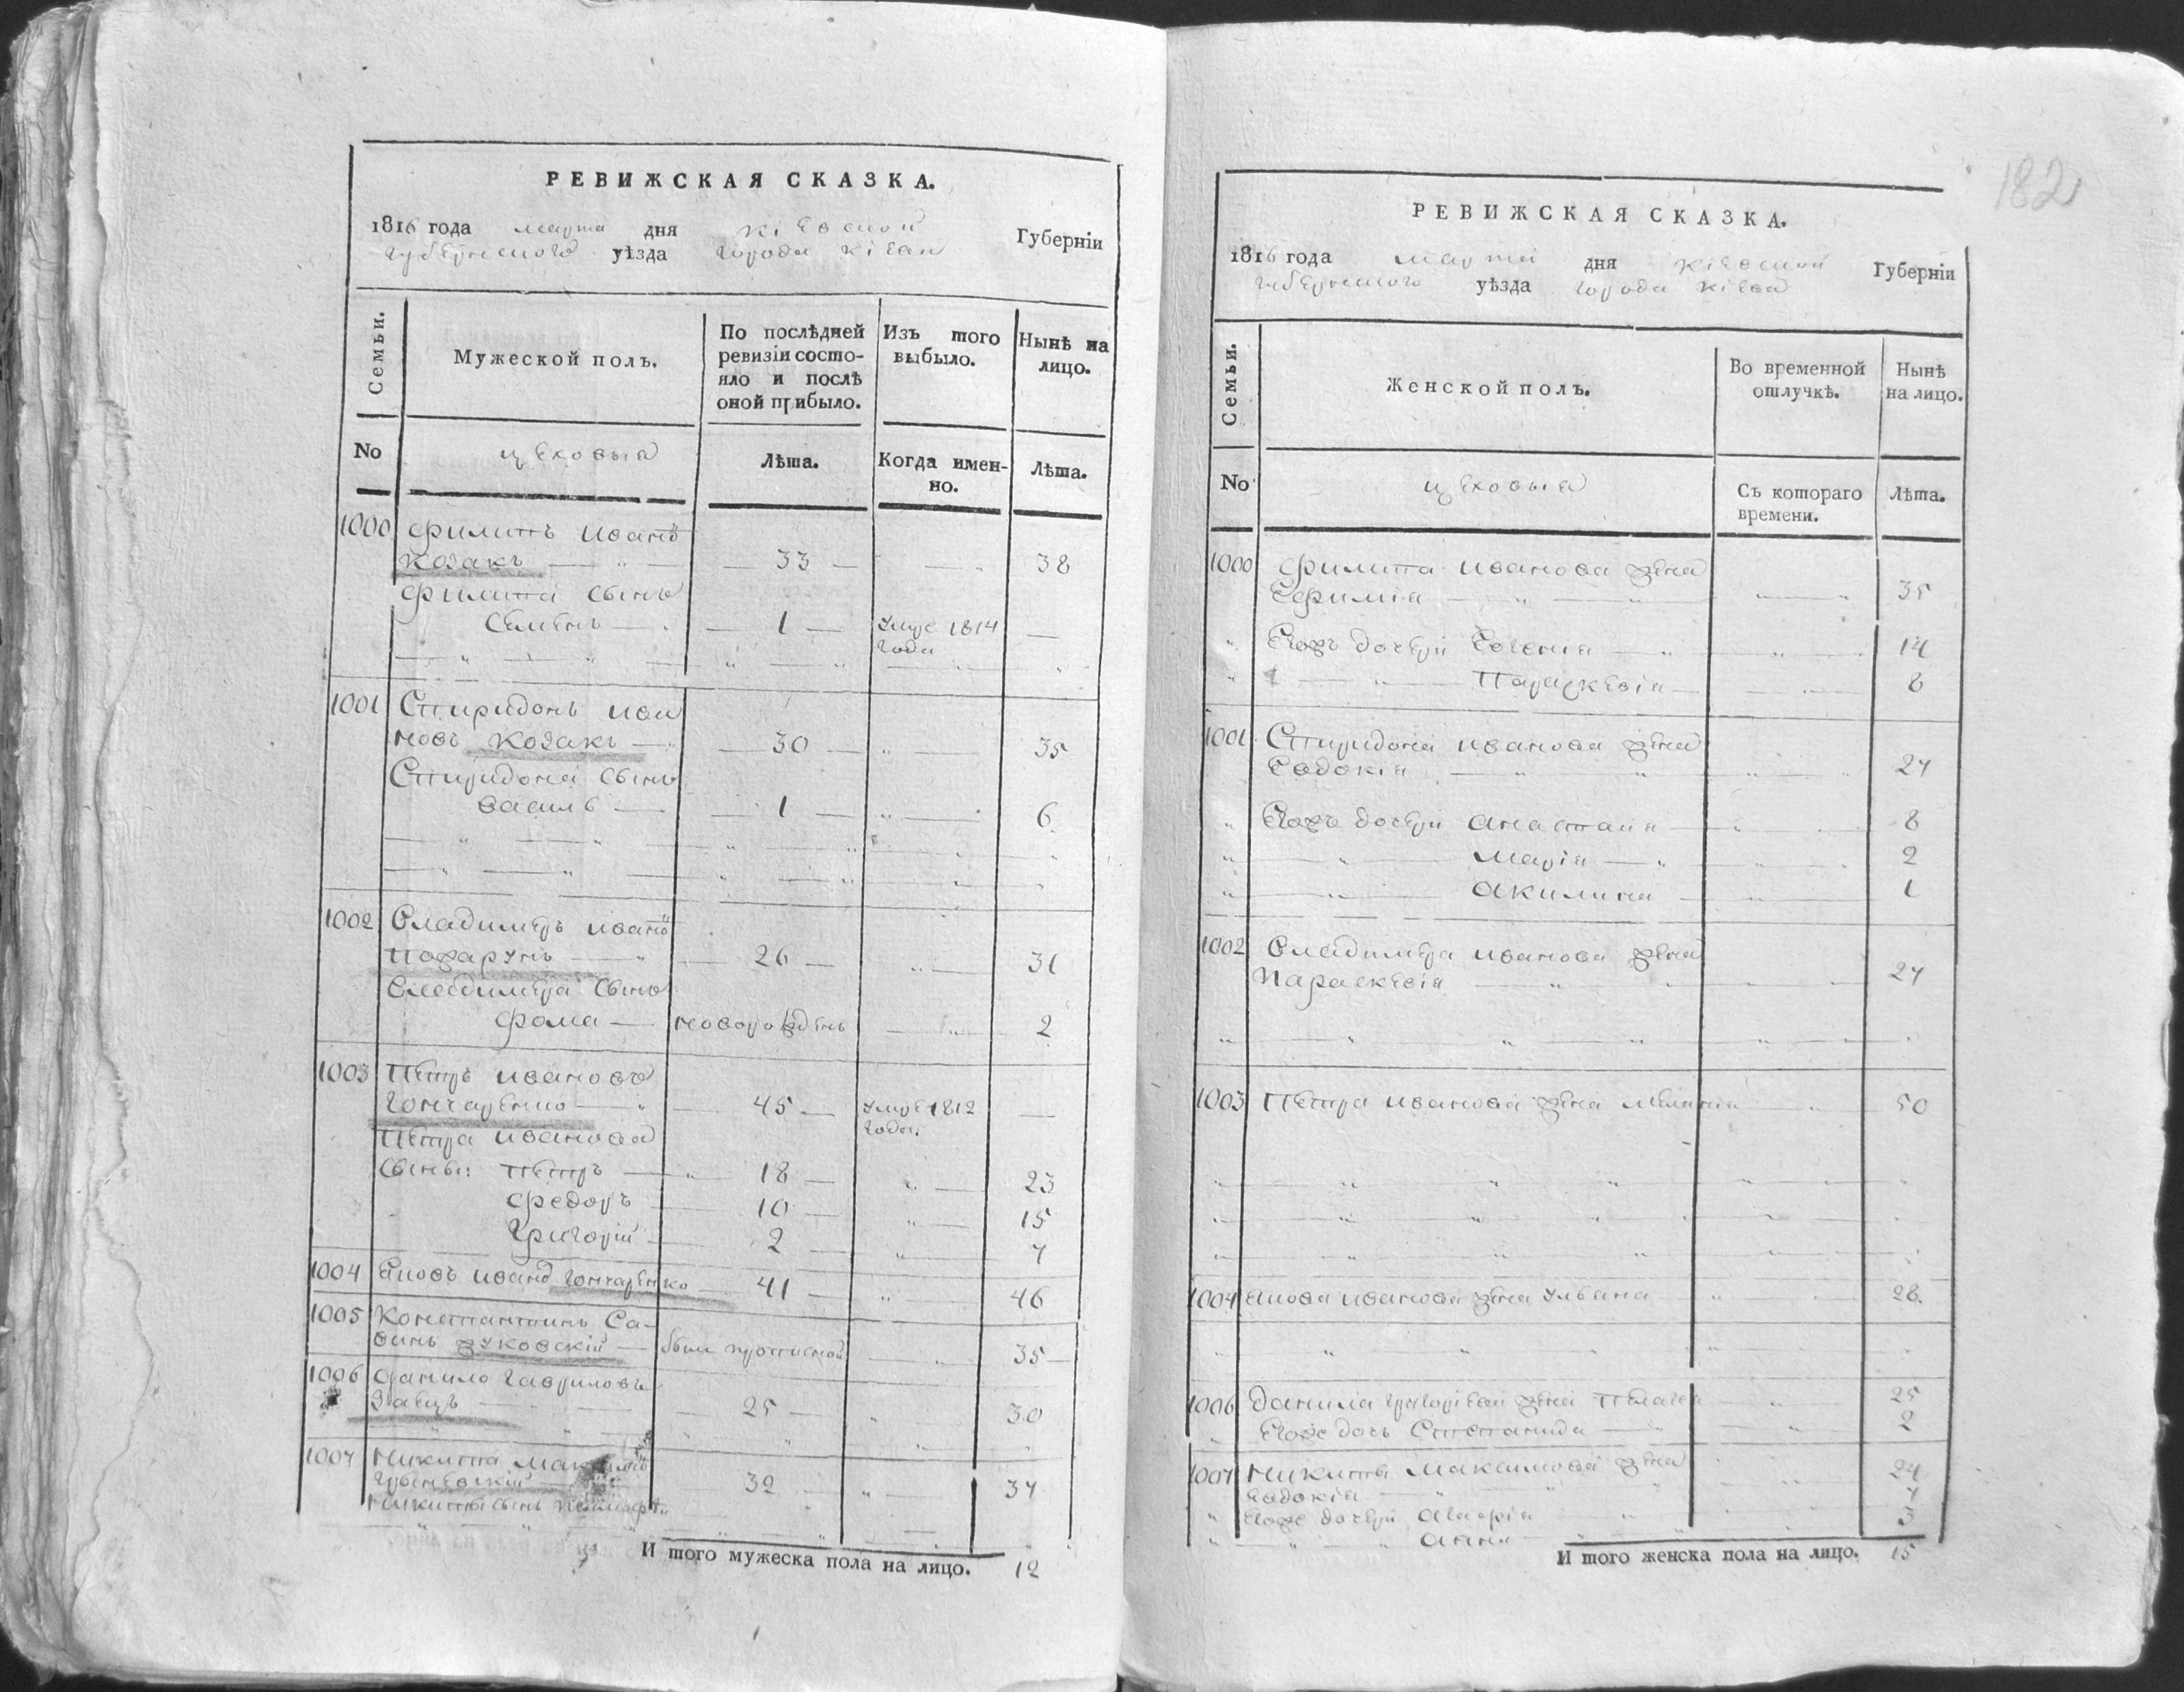 РЕВИЖСКАЯ СКАЗКА.
1816 года марта дня Кіевской Губерніи
Губернского уѣзда города Кіева
Семьи.
Мужеской полъ.
По послѣдней ревизіи состо-
яло и послѣ
оной прибыло.
Изъ того
выбыло.
Нынѣ на
лицо.
No
цеховыя
Лѣта.
Когда имен-
но.
Лѣта.
1000 Филипъ Иванъ
Козакъ 33 38
Филипа сынъ
Семенъ 1 умре 1814
года
1001 Спиридонъ Ива
новъ Козакъ 30 35
Спиридона сынъ
Василь 1 6
1002 Владимеръ Иванъ
Пожарунъ 26 31
Владимера сынъ
Фома новорожденъ 2
1003 Петръ Ивановъ
Гончаренко 45 умре 1812
года
Петра Иванова
сыны: Петръ 18 23
Федоръ 10 15
Григорій 2 7
1004 Яковъ Иванъ Гончаренко 41 46
1005 Константинъ Са-
винъ Жуковскій былъ прописной 35
1006 Данило Гавриловъ
Заецъ 25 30
1007 Никита Максимъ
32 37
Никиты сынъ
И того мужеска пола на лицо. 12
182
РЕВИЖСКАЯ СКАЗКА.
1816 года марта дня Кіевской Губерніи
Губернского уѣзда города Кіева
Семьи.
Женской полъ.
Во временной
отлучкѣ.
Нынѣ
на лицо.
No
цеховыя
Съ котораго
времени.
Лѣта.
1000 Филипа Иванова жена
Ефимія 35
Егожъ дочери Евгенія 14
Параскевія 8
1001 Спиридона Иванова жена
Евдокія 27
Егожъ дочери Анастасія 8
Марія 2
Акилина 1
1002 Владимера Иванова жена
Параскевія 27
1003 Петра Иванова жена Меланія 50
1004 Якова Иванова жена Ульяна 28
1006 Данила Григоріева жена Пелагея 25
Егоже дочь Степанида 2
1007 Никиты Максимова жена 24
Евдокія 7
Егоже дочери 3
Анна
И того женска пола на лицо. 15